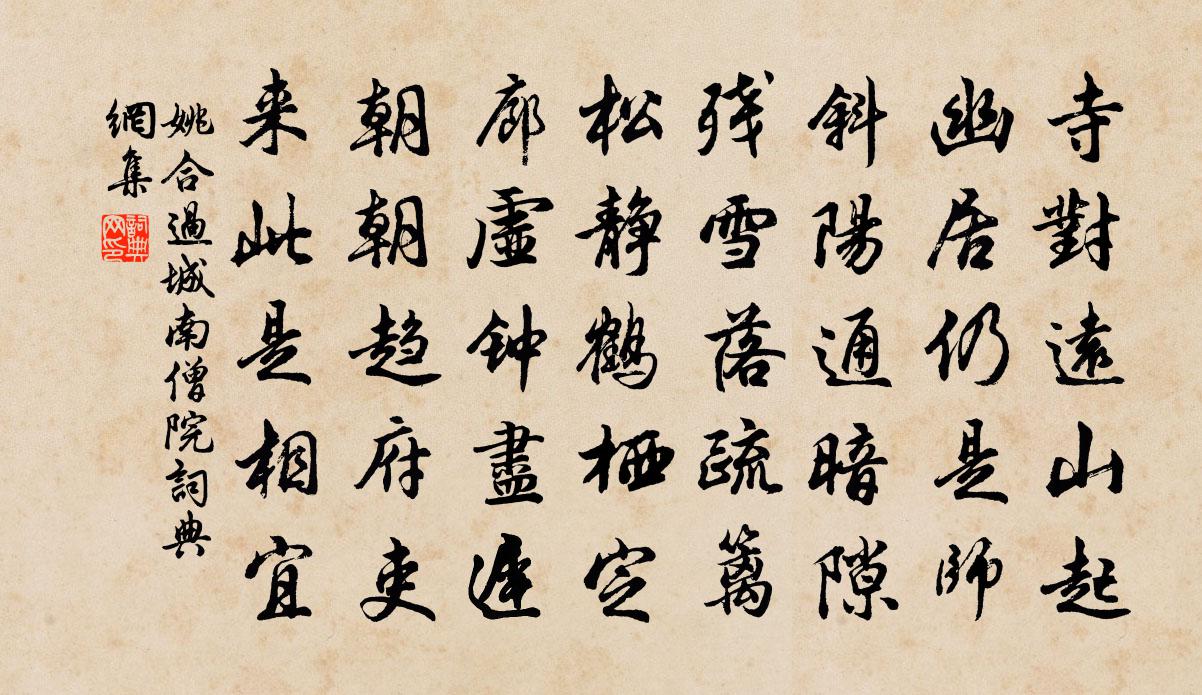 寺對遠山起
幽居仍是師
斜陽通暗隙
残雪落疏籬
松静鶴栖定
廊虛钟盡遲
朝朝趋府吏
来此是相宜
姚合過城南僧院詞典
網集
詞典网印